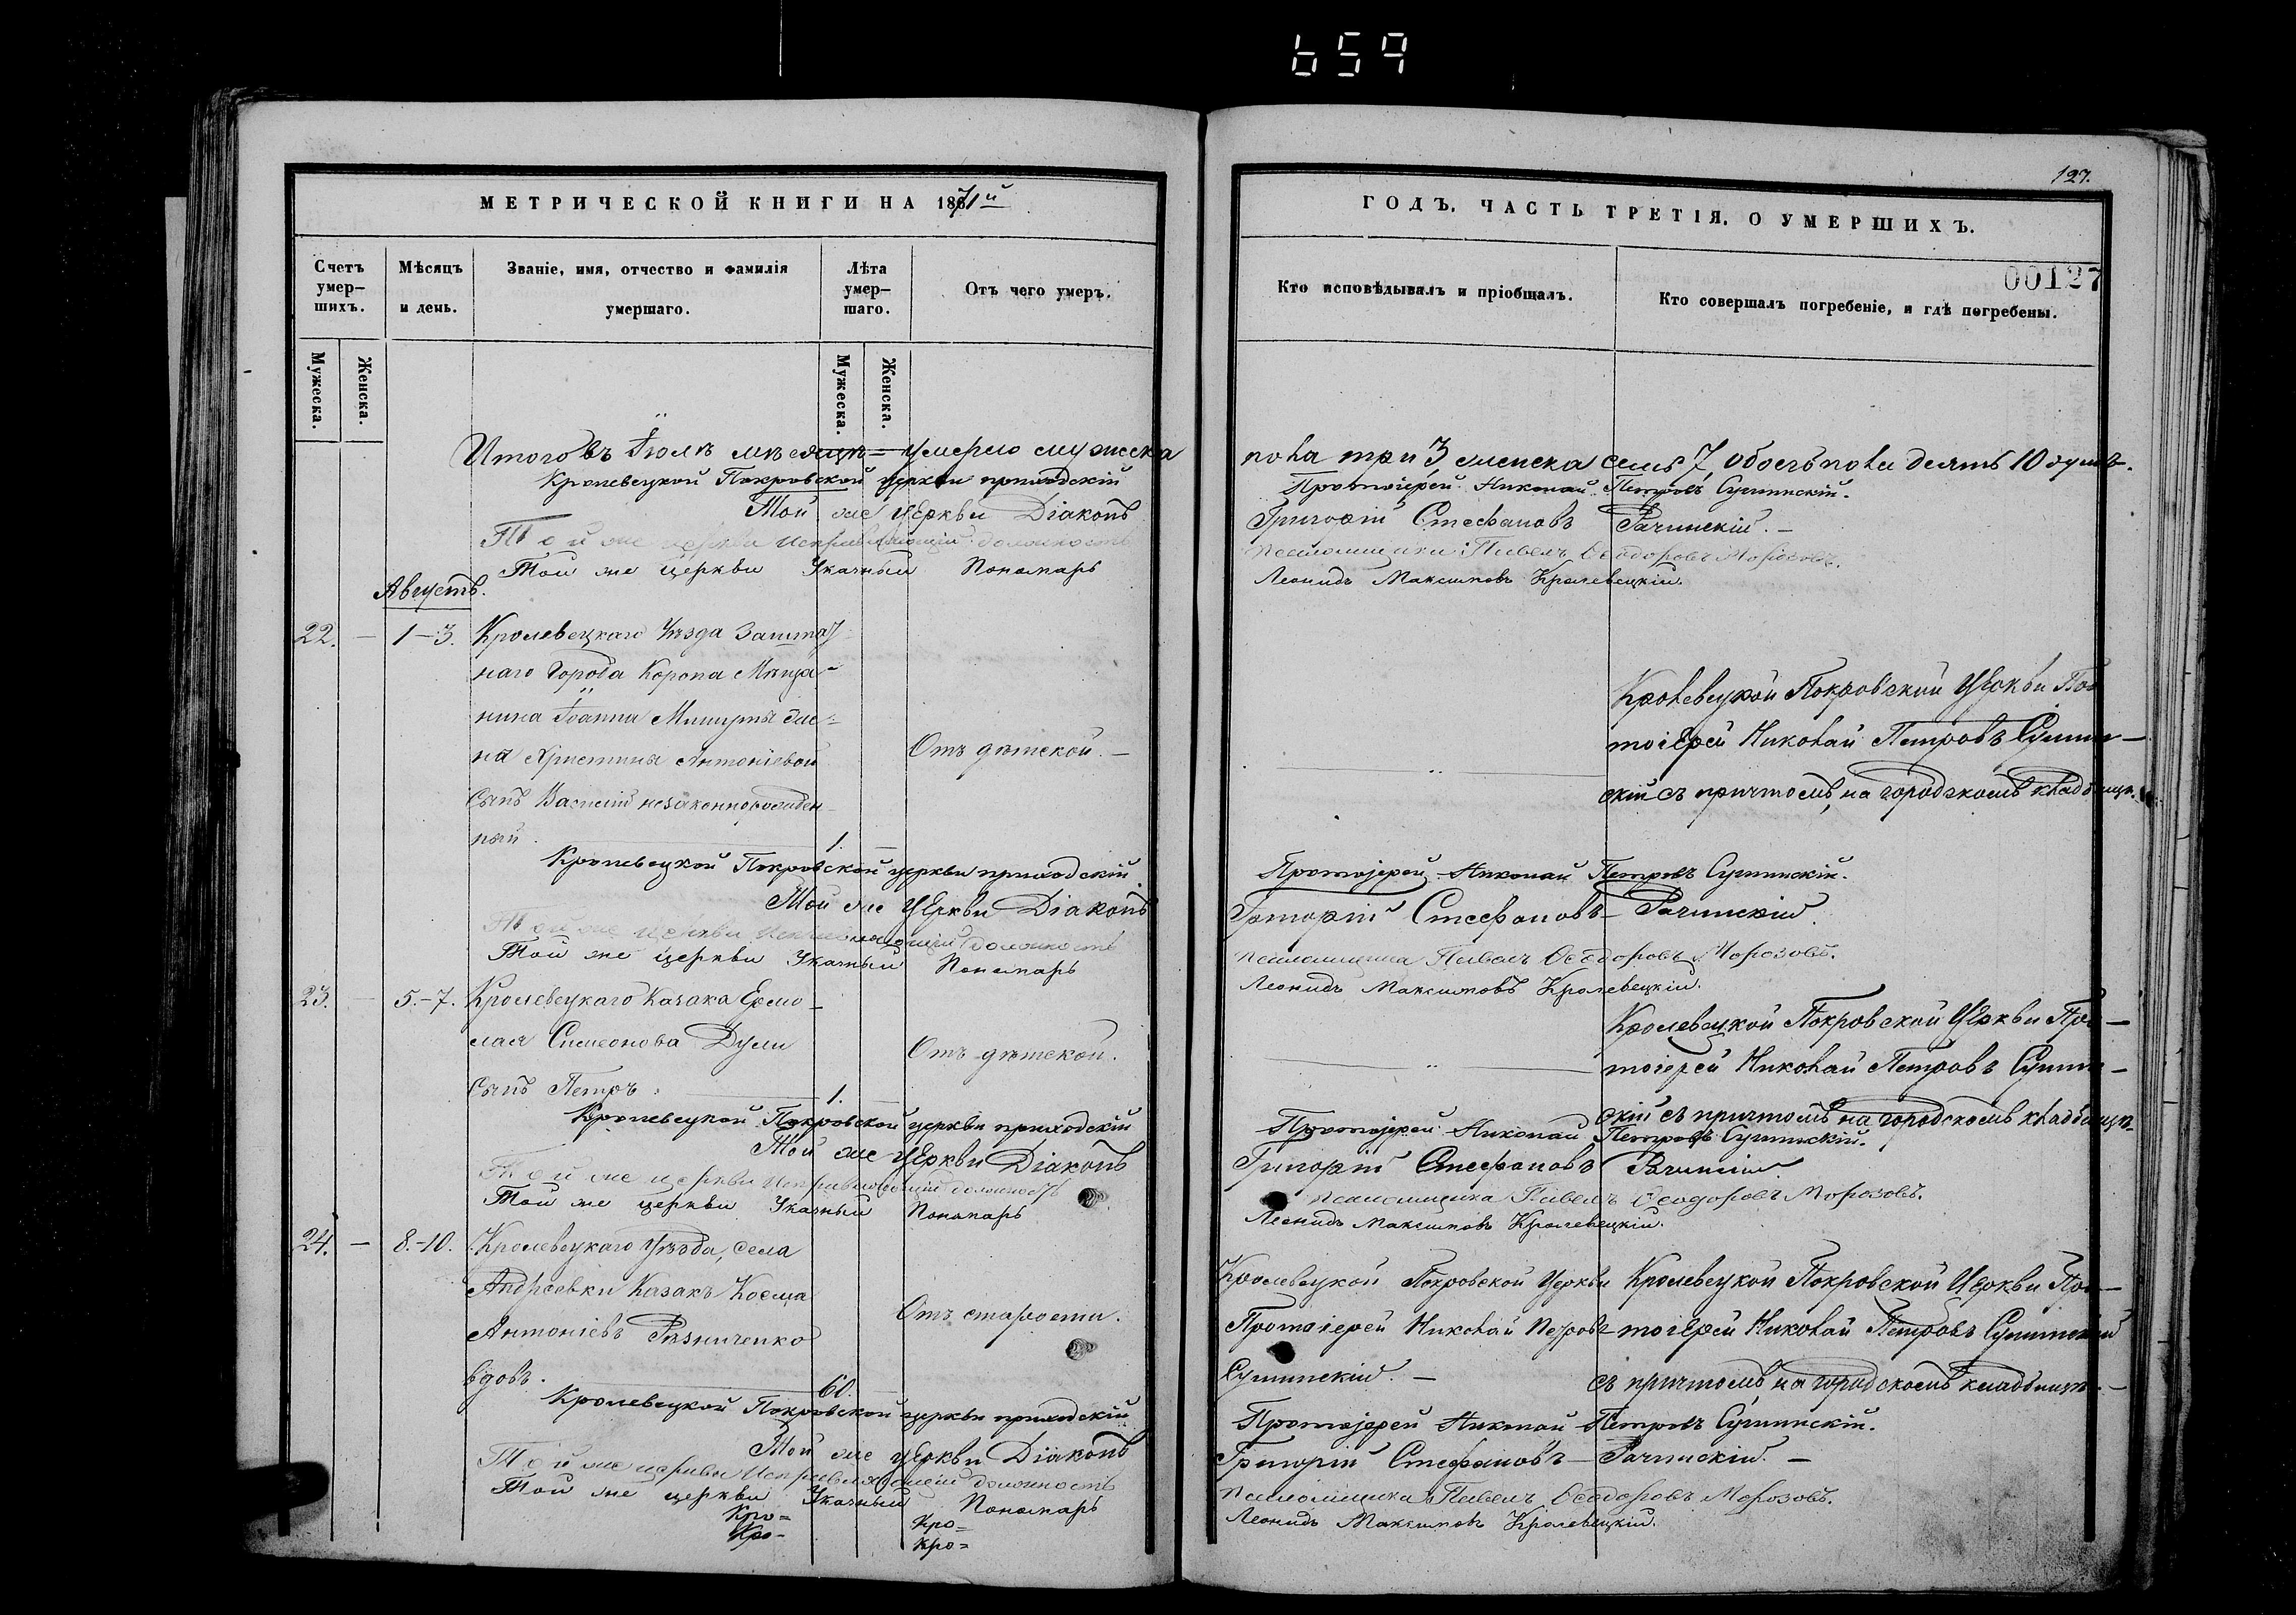 659
МЕТРИЧЕСКОЙ КНИГИ НА 1871й
Счетъ умер–шихъ.
Мѣсяцъ и день.
Званіе, имя, отчество и фамилія умершаго.
Лѣта умер–шаго.
Отъ чего умеръ.
Мужеска.
Женска.
Мужеска.
Женска.
Итого въ Іюлѣ мѣсяцѣ = умерло мужеска
Кролевецкой Покровской церкви приходскій
Той же Церкви Діаконъ
Той же церкви Исправляющій должность
Той же церкви Указный Пономарь
Августъ.
22. — 1–3. Кролевецкаго Уѣзда Заштат
наго Города Коропа Мѣща-
нина Іоанна Мишуты же=
на Христины Антоніевой
Отъ дѣтской. —
сынъ Василій незаконнорожден
ный. 1. —
Кролевецкой Покровской церкви приходскій
Той же Церкви Діаконъ
Той же церкви Исправляющій должность
Той же церкви Указный Пономарь
23. — 5.–7. Кролевецкаго Казака Ермо–
лая Симеонова Дули
Отъ дѣтской.
сынъ Петръ. 1. —
Кролевецкой Покровской церкви приходскій
Той же Церкви Діаконъ
Той же церкви Исправляющій должность
Той же церкви Указный Пономарь
24. — 8.–10. Кролевецкаго Уѣзда, села
Андреевки Казакъ Косма
Отъ старости.
Антоніевъ Рѣзниченко
вдовъ. 60. —
Кролевецкой Покровской церкви приходскій
Той же Церкви Діаконъ
Той же церкви Исправляющій должность
Той же церкви Указный Пономарь
Кро= Кро=
Кро- Кро=
127.
ГОДЪ, ЧАСТЬ ТРЕТІЯ, О УМЕРШИХЪ.
00127
Кто исповѣдывалъ и пріобщалъ.
Кто совершалъ погребеніе, и гдѣ погребены.
пола три 3, женска семь 7, обоегъ пола десять 10 душъ.
Протоіерей Николай Петровъ Сушинскій.
Григорій Стефановъ Рачинскій. —
псаломщика Павелъ Ѳеодоровъ Морозовъ.
Леонидъ Максимовъ Кролевецкій.
Кролевецкой Покровской Церкви Про
тоіерей Николай Петровъ Сушин—
скій съ причтомъ, на городскомъ кладбищѣ.
Протоіерей Николай Петровъ Сушинскій.
Григорій Стефановъ Рачинскій.
псаломщика Павелъ Ѳеодоровъ Морозовъ.
Леонидъ Максимовъ Кролевецкій.
Кролевецкой Покровской Церкви Про—
тоіерей Николай Петровъ Сушин—
скій съ причтомъ на городскомъ кладбищѣ
Протоіерей Николай Петровъ Сушинскій.
Григорій Стефановъ Рачинскій
псаломщика Павелъ Ѳеодоровъ Морозовъ.
Леонидъ Максимовъ Кролевецкій.
Кролевецкой Покровской Церкви
Протоіерей Николай Петровъ
Сушинскій. —
Кролевецкой Покровской Церкви Про—
тоіерей Николай Петровъ Сушинскій
съ причтомъ, на городскомъ кладбищѣ. —
Протоіерей Николай Петровъ Сушинскій.
Григорій Стефановъ — Рачинскій. —
псаломщика Павелъ Ѳеодоровъ Морозовъ.
Леонидъ Максимовъ Кролевецкій.